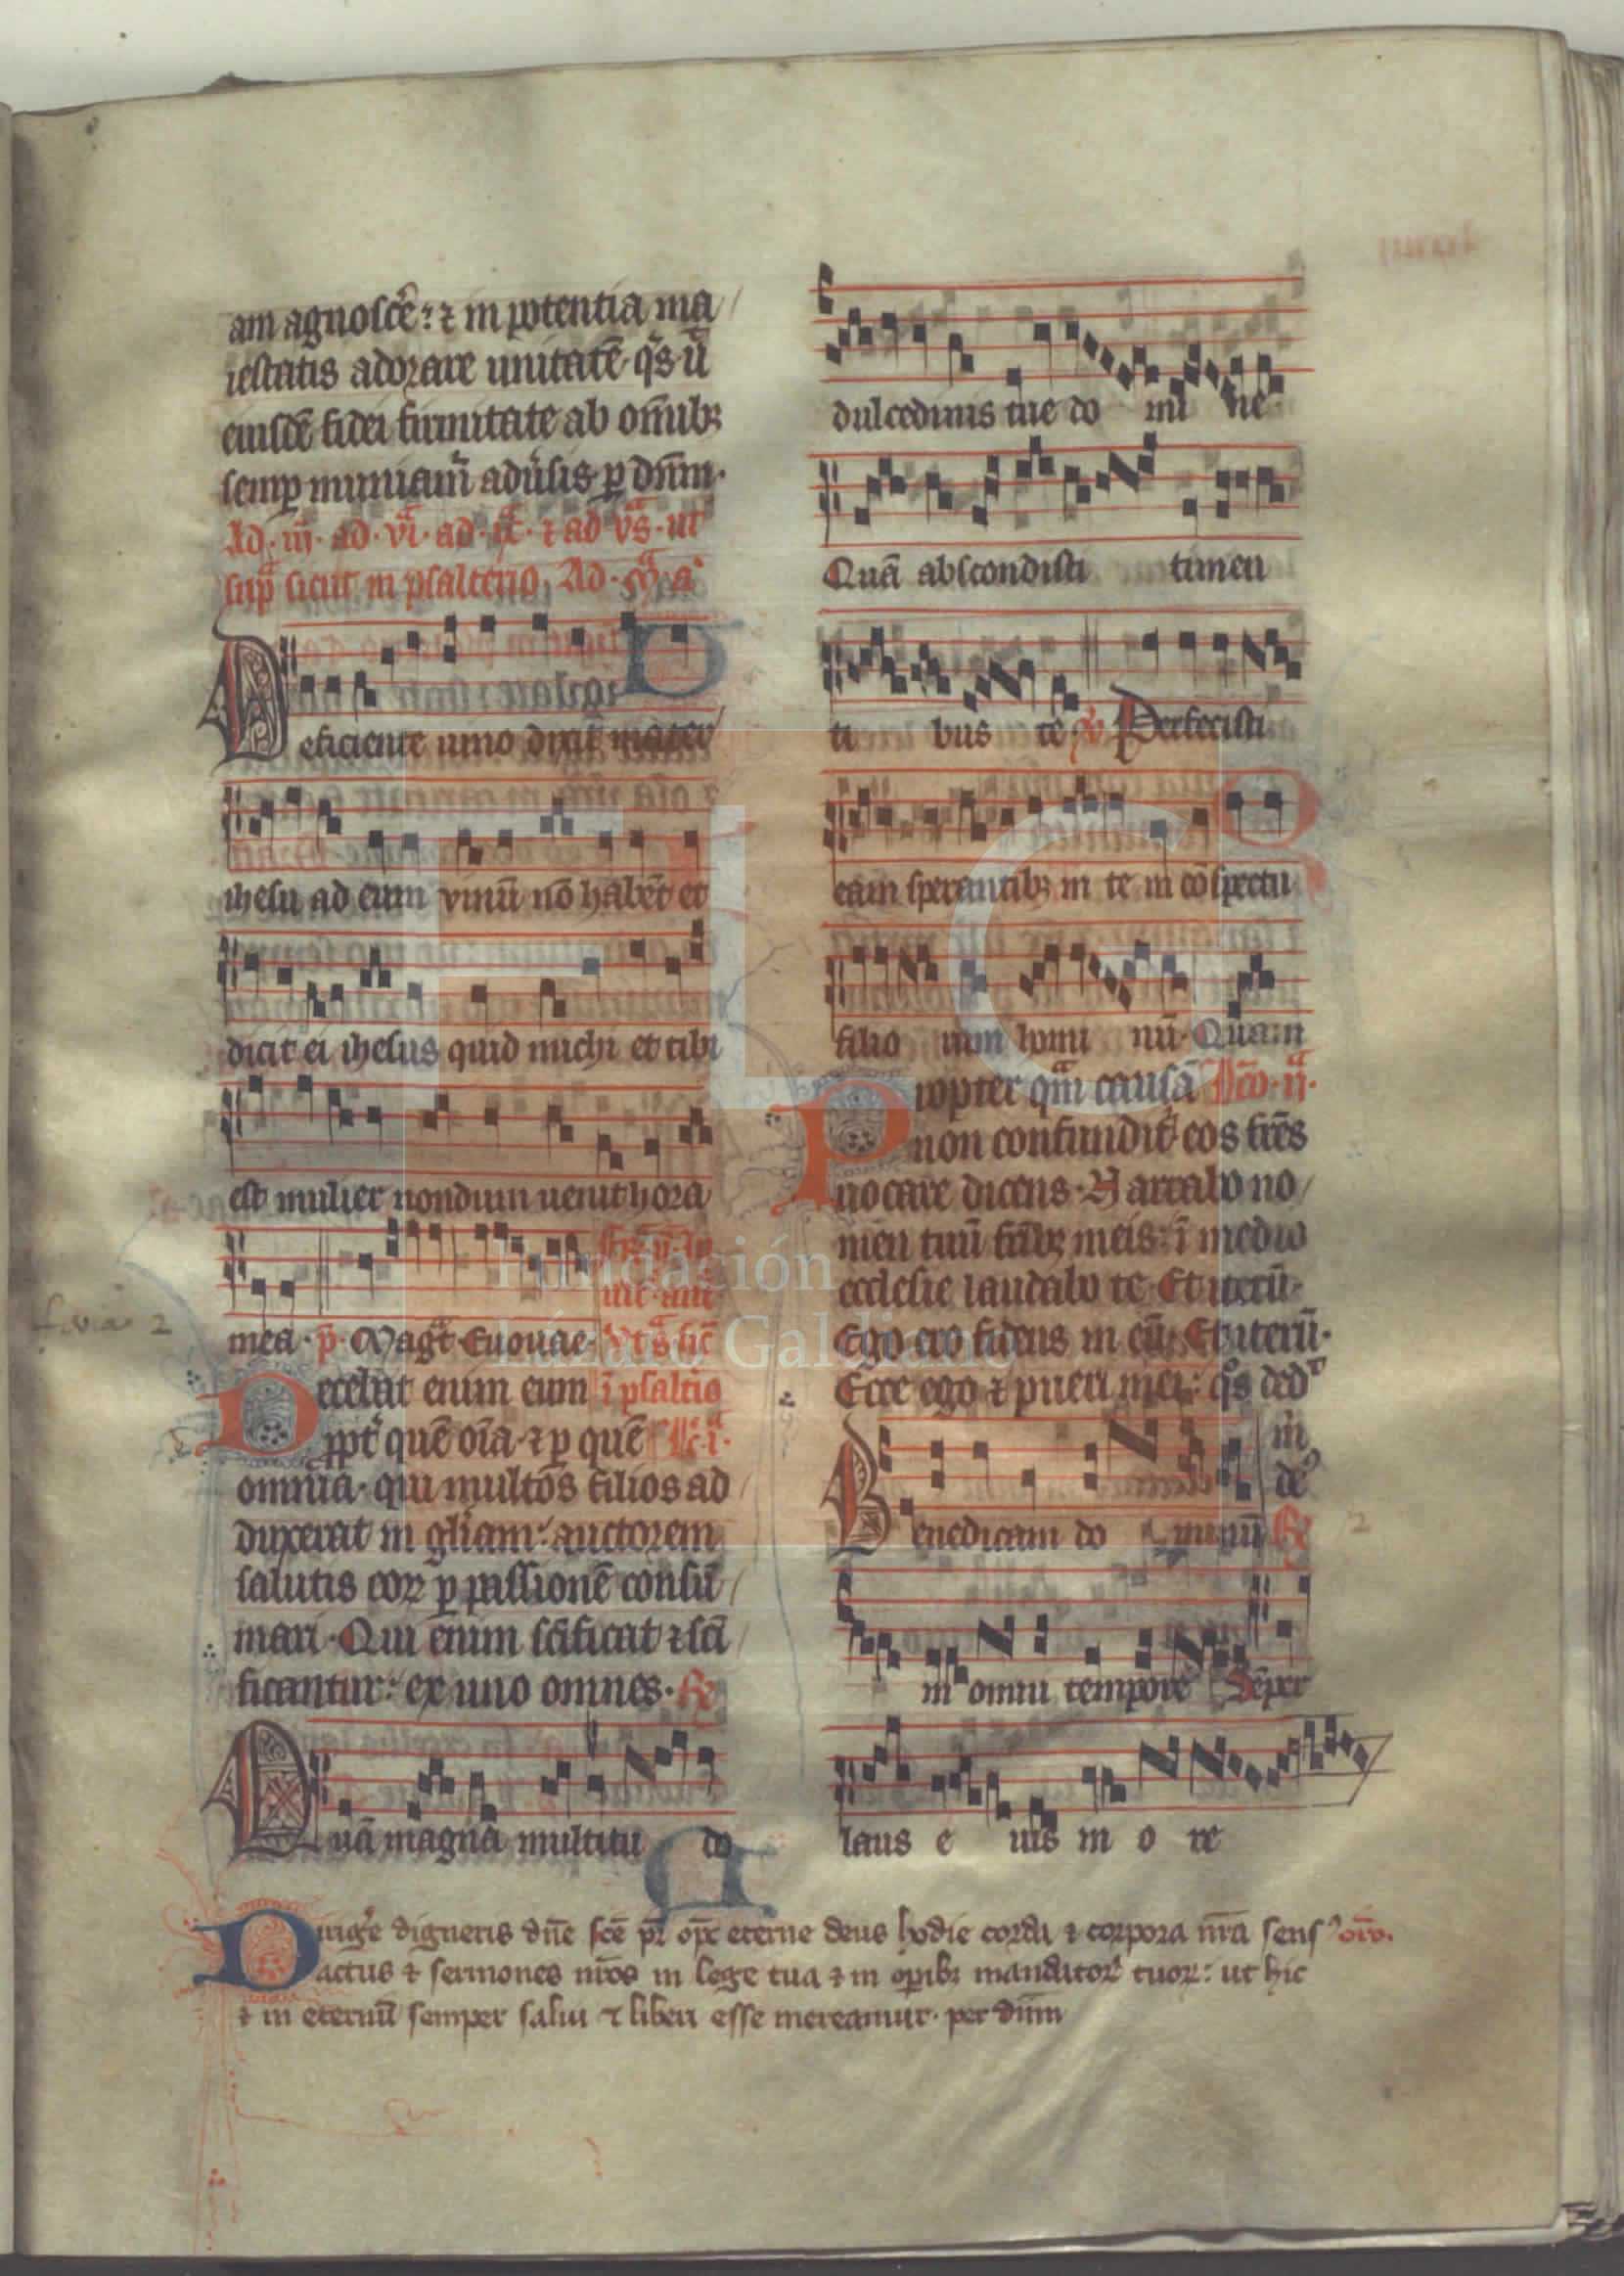 am agnosc̄e: ⁊ in potentia ma/
iestatis adorare unitatē. q̄s ūt
eiusdē fidei firmitate ab om̄ibꝫ
semꝑ muniam̄ adūsis. ꝑ dn̄m.
Ad. iij. ad. vi. ad. ix. ⁊ ad vs̄. ut
sup̄ sicut in psalterio. Ad. m̄. a
Deficiente uino dixit mater
ihesu ad eum vinū nō habēt et
dicit ei ihesus quid michi et tibi
est mulier nondum uenit hora
mea. p̄. Magt̄. Euouae.
Decebat enim eum ī psalt̄io
ꝓpt̄ quē oīa. ⁊ ꝑ quē Lc̄. i.
omnia. qui multos filios ad
duxerat in glīam: auctorem
salutis eoꝝ ꝑ passionē consū/
mari. Qui enim scīficat ⁊ scī/
ficantur: ex uno omnes. ℟
Quā magna multitu do
dulcedinis tue do mi ne
Quā abscondisti timen
ti bus te ℣ Perfecisti
eam sperantibꝫ in te in cōspectu
filio rum homi nū. Quam
Propter qm̄ causā Lcō. ij.
non confundit̄ eos fr̄es
uocare dicens. Narrabo no/
men tuū fr̄ibꝫ meis: ī medio
ecclesie laudabo te. Et iterū.
Ego ero fidens in eū. Et iterū.
Ecce ego ⁊ pueri mei: q̄s ded
m̄
dē
Benedicam do minū ℟
in omni tempore Sēper
laus e ius in o re
Dirige digneris dn̄e sc̄e pr̄ op̄s eterne deus hodie corda ⁊ corpora nr̄a sens̄ orō.
actus ⁊ sermones nr̄os in lege tua ⁊ in oꝑibꝫ mandatoꝝ tuoꝝ: ut hic
⁊ in eternū semper salui ⁊ liberi esse mereamur. per dn̄m
feria 2
2
FLG
Fundación
Lázaro Galdiano